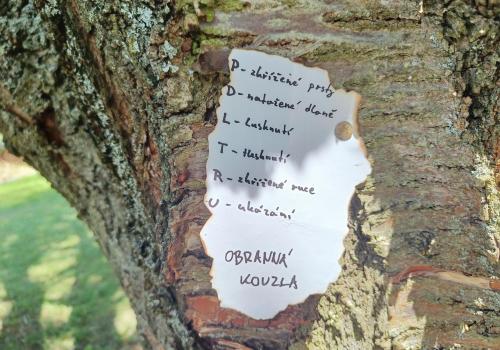 P - zkřížené prsty
D - natažené dlaně
L - lusknutí
T - tlesknutí
R - zkřížené ruce
U - ukázání
OBRANNÁ
KOUZLA